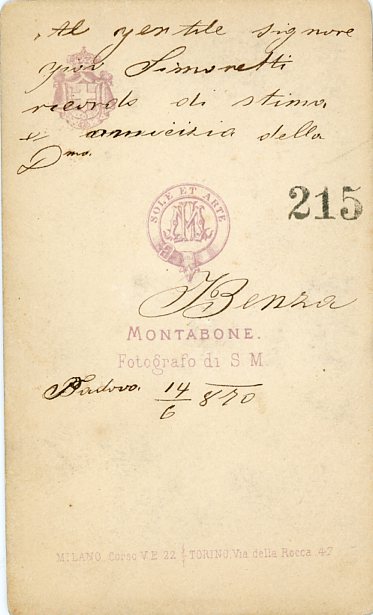 Al gentile signore
Simonetti
ricordo di stima
amicizia della
Dma.
SOLE ET ARTE
215
Benza
MONTABONE.
Fotografo di S. M.
Padova. 14/6 870
MILANO Corso V.E. 22 TORINO, Via della Rocca 47